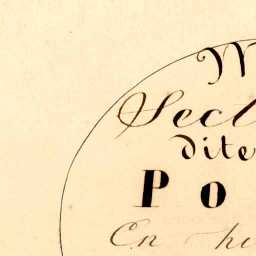 Sect
dite
Po
En